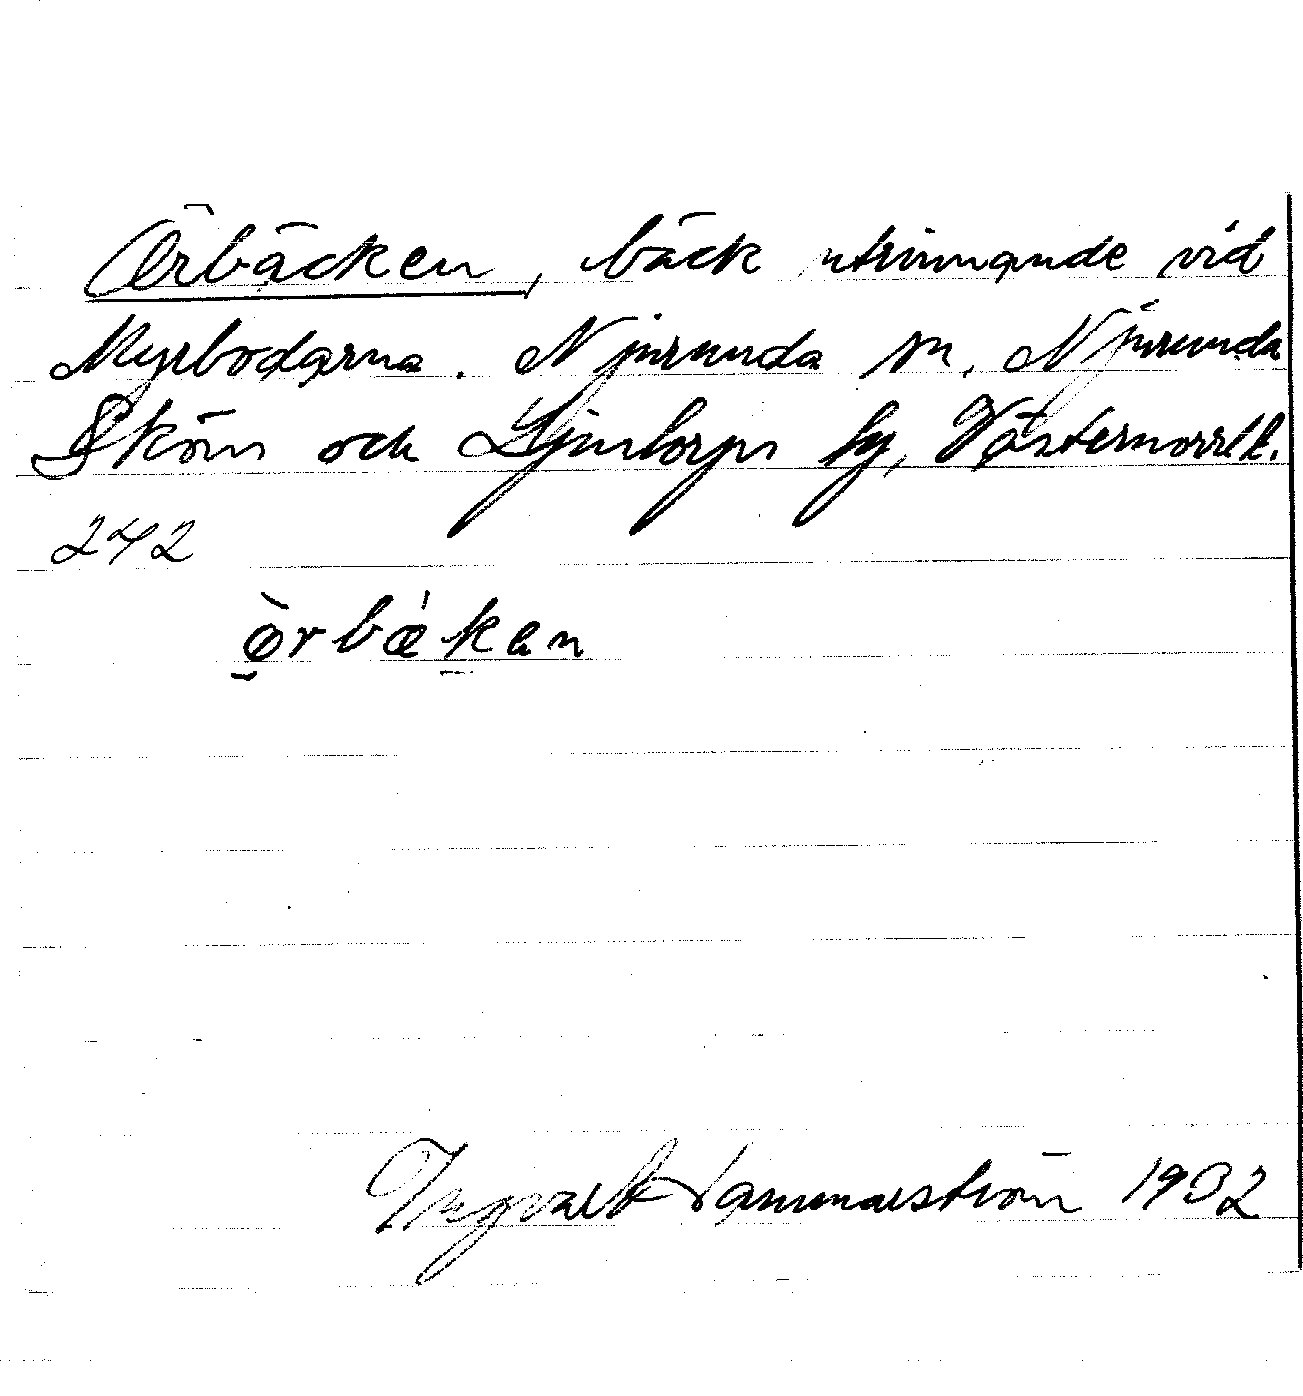 Örbäcken, bäck utrinnande vid
Myrbodarna. Njurunda sn, Njurunda
Sköns och Ljustorps tg, Västernorrl l.
242
ö̀rbæ̀ken
Ingvald Hammarström 1932